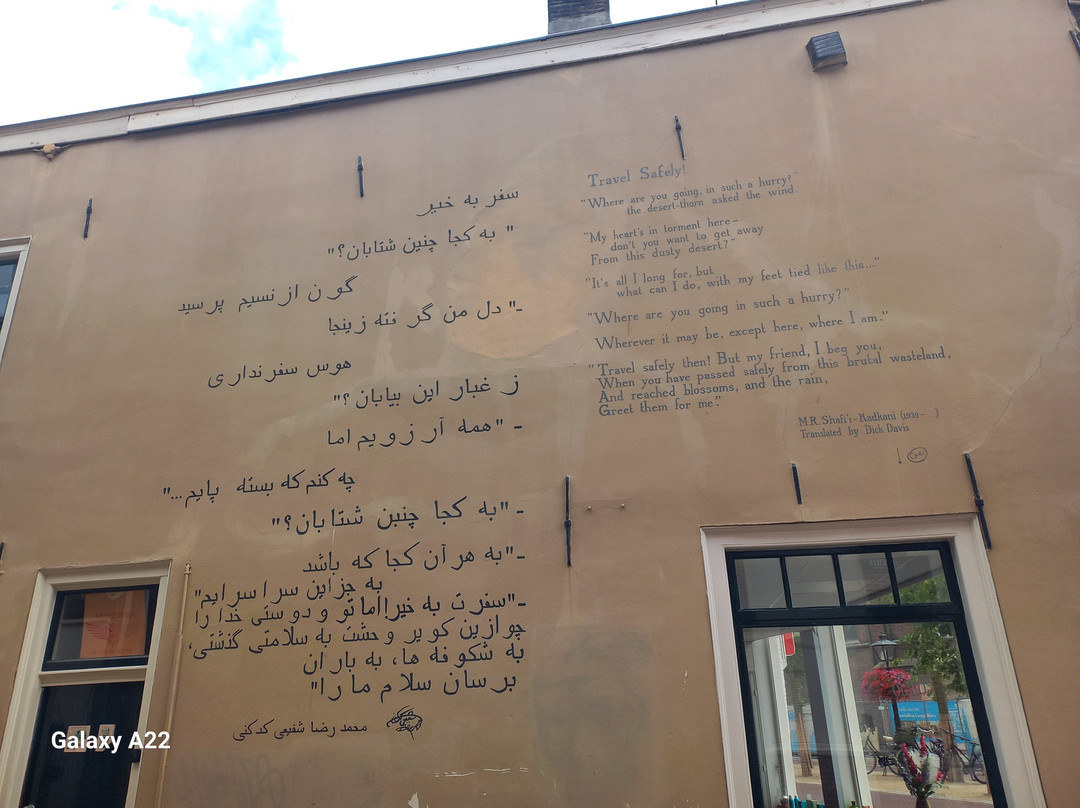 سفر به خیر
" به کجا چنین شتابان؟"
گون از نسیم پرسید
ـ" دل من گرفته زینجا
هوس سفر نداری
ز غبار این بیابان ؟"
ـ "همه آرزویم اما
چه کنم که بسته پایم..."
ـ "به کجا چنین شتابان؟"
ـ"به هر آن کجا که باشد
به جز این سرا سرایم"
ـ"سفرت به خیر!اما تو و دوستی خدا را
چو ازین کویر وحشت به سلامتی گذشتی،
به شکوفه ها، به باران
برسان سلام ما را"
محمد رضا شفیعی کدکنی
Travel Safely!
"Where are you going, in such a hurry?"
the desert-thorn asked the wind.
"My heart's in torment here—
don't you want to get away
From this dusty desert?"
"It's all I long for, but
what can I do, with my feet tied like this..."
"Where are you going in such a hurry?"
Wherever it may be, except here, where I am."
"Travel safely then! But my friend, I beg you,
When you have passed safely from this brutal wasteland,
And reached blossoms, and the rain,
Greet them for me."
M.R. Shafi'i-Kadkani (1939- )
Translated by Dick Davis
Galaxy A22